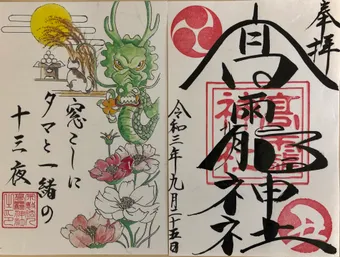 奉拝
髙龗神社
令和三年九月二十五日
窓ごしに
タマと一緒の
十三夜